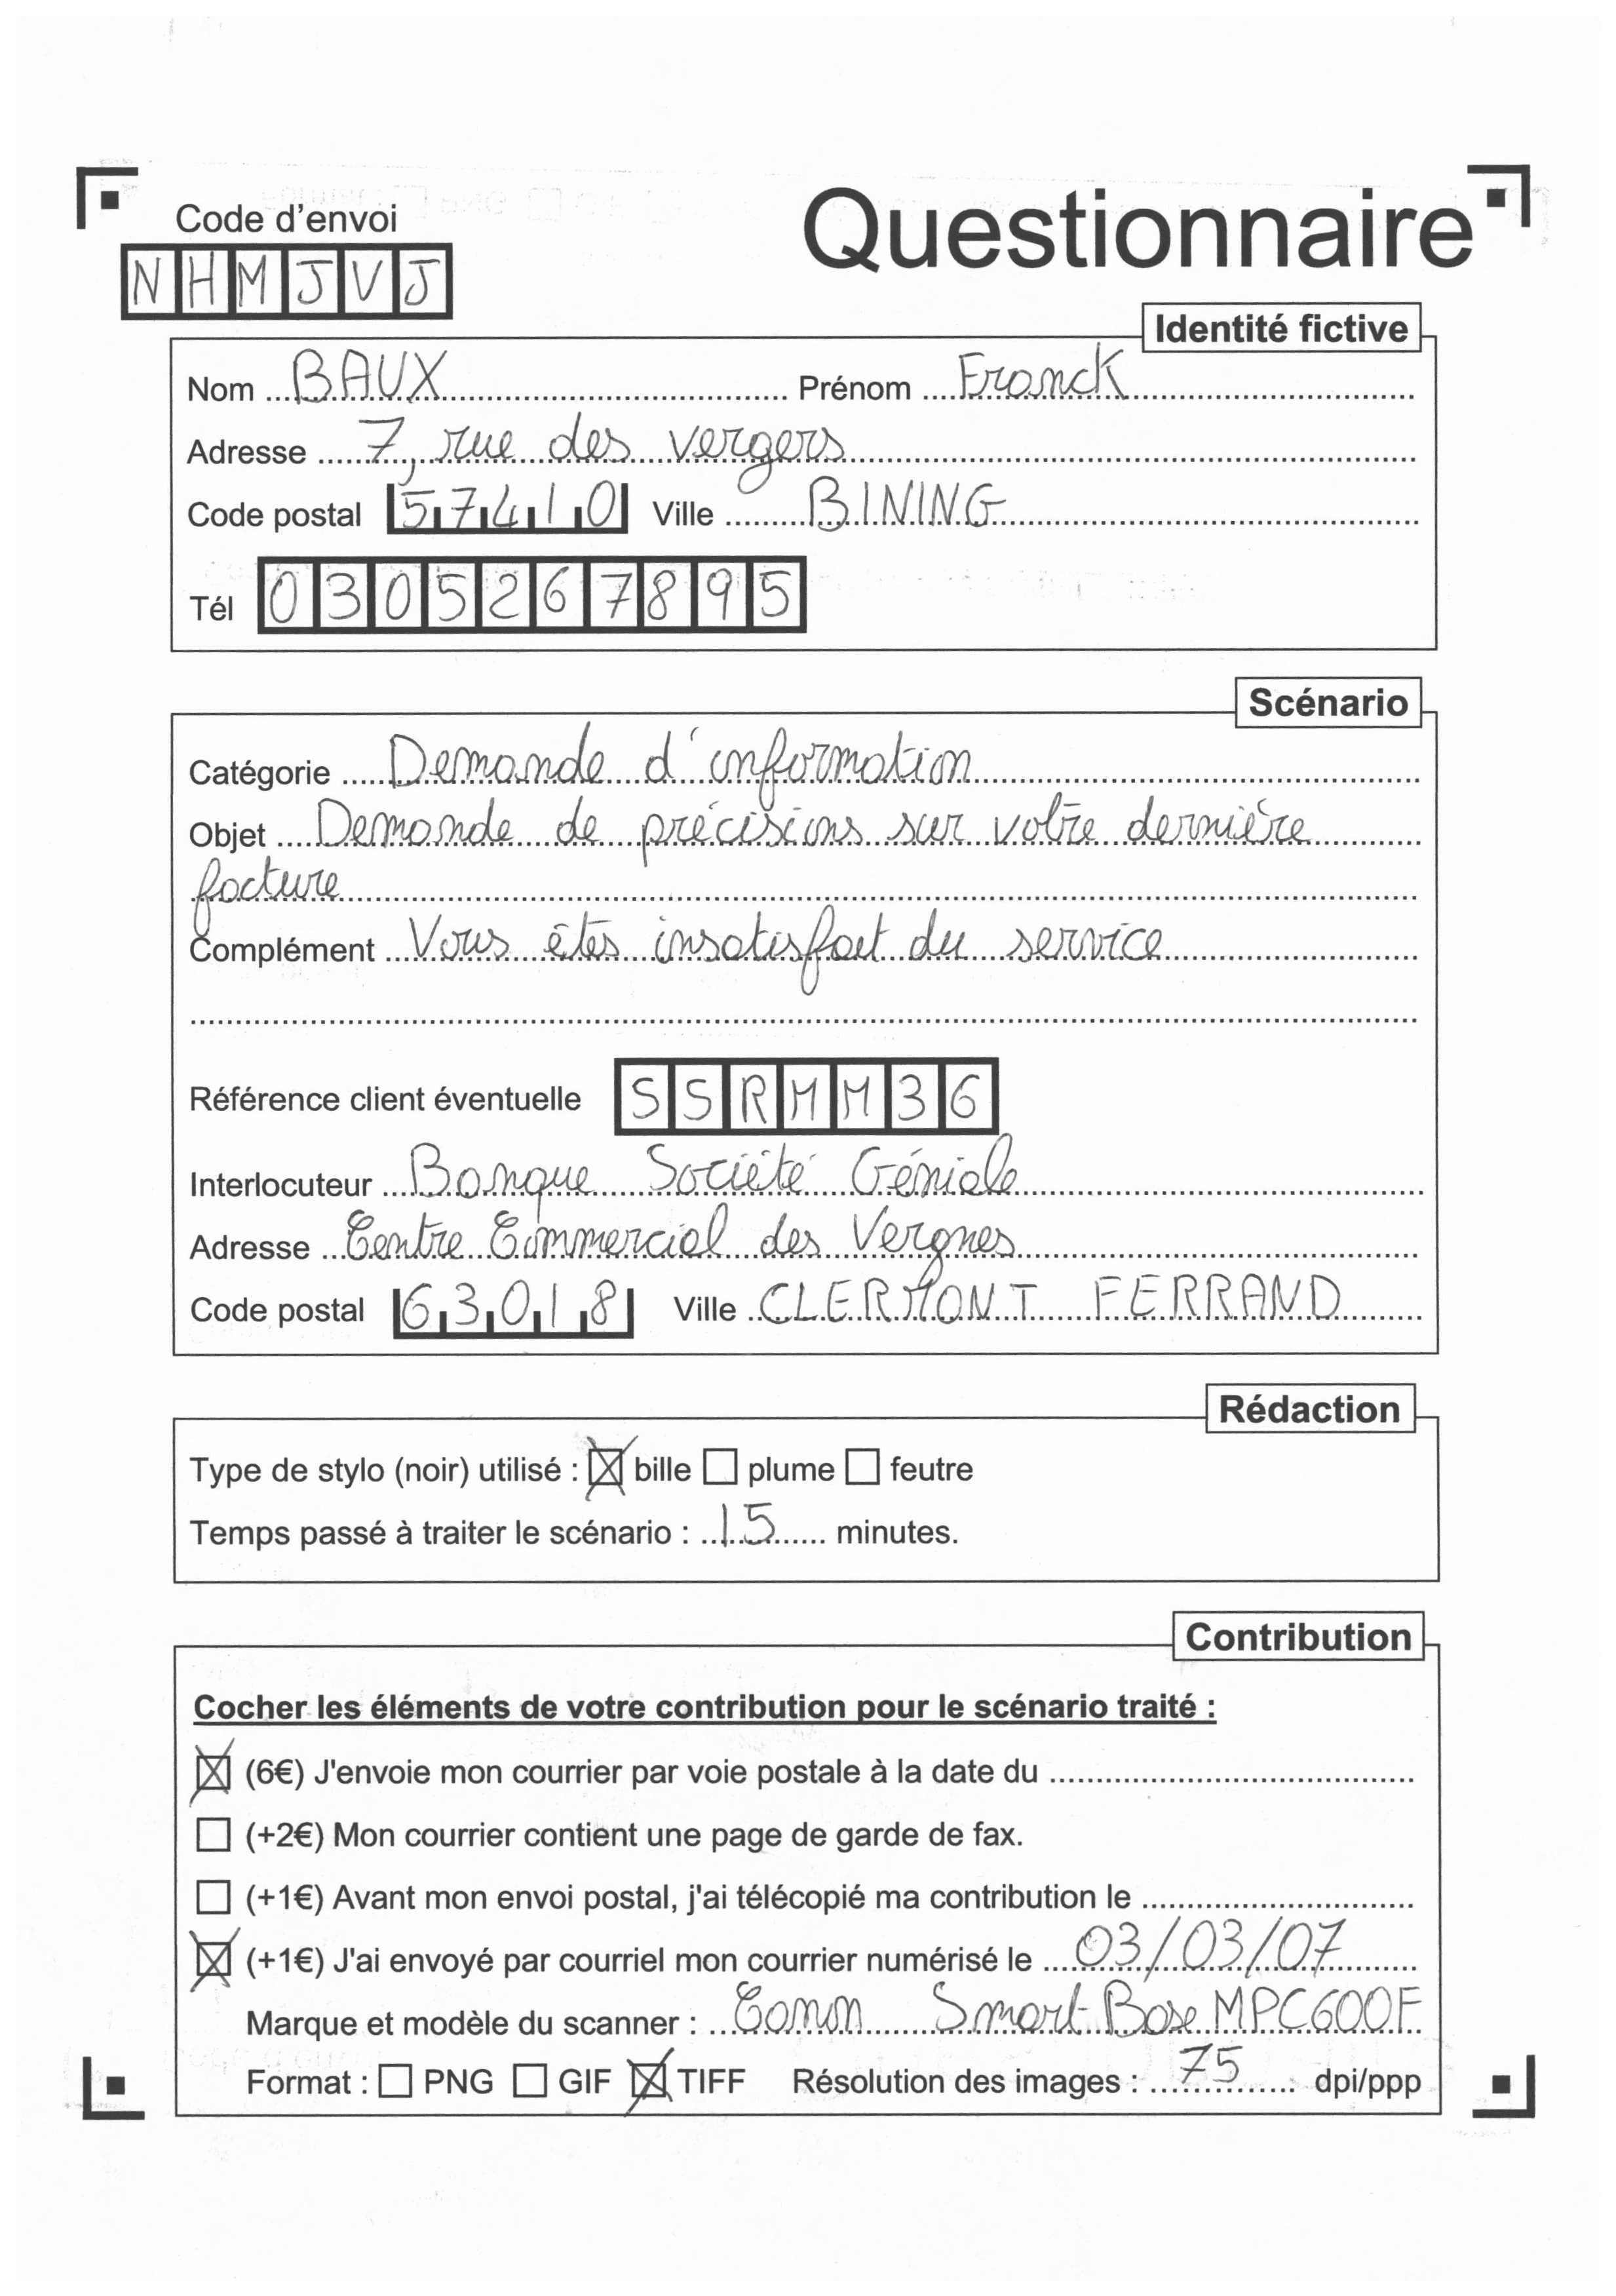 Code d'envoi
Questionnaire
NHMJVJ
Identité fictive
Nom BAUX Prénom Franck
Adresse 7, rue des vergers
Code postal 57410 Ville BINING
Tél 0305267895
Scénario
Catégorie Demande d'information
Objet Demande de précisions sur votre dernière
facture
Complément Vous êtes insatisfait du service
Référence client éventuelle SSRMM36
Interlocuteur Banque Société Géniale
Adresse Centre Commercial des Vergnes
Code postal 63018 Ville CLERMONT FERRAND
Rédaction
Type de stylo (noir) utilisé : ☒ bille ☐ plume ☐ feutre
Temps passé à traiter le scénario : 15 minutes.
Contribution
Cocher les éléments de votre contribution pour le scénario traité :
☒ (6€) J'envoie mon courrier par voie postale à la date du
☐ (+2€) Mon courrier contient une page de garde de fax.
☐ (+1€) Avant mon envoi postal, j'ai télécopié ma contribution le
☒ (+1€) J'ai envoyé par courriel mon courrier numérisé le 03/03/07
Marque et modèle du scanner : Canon Smart Base MPC600F
Format : ☐ PNG ☐ GIF ☒ TIFF Résolution des images : 75 dpi/ppp